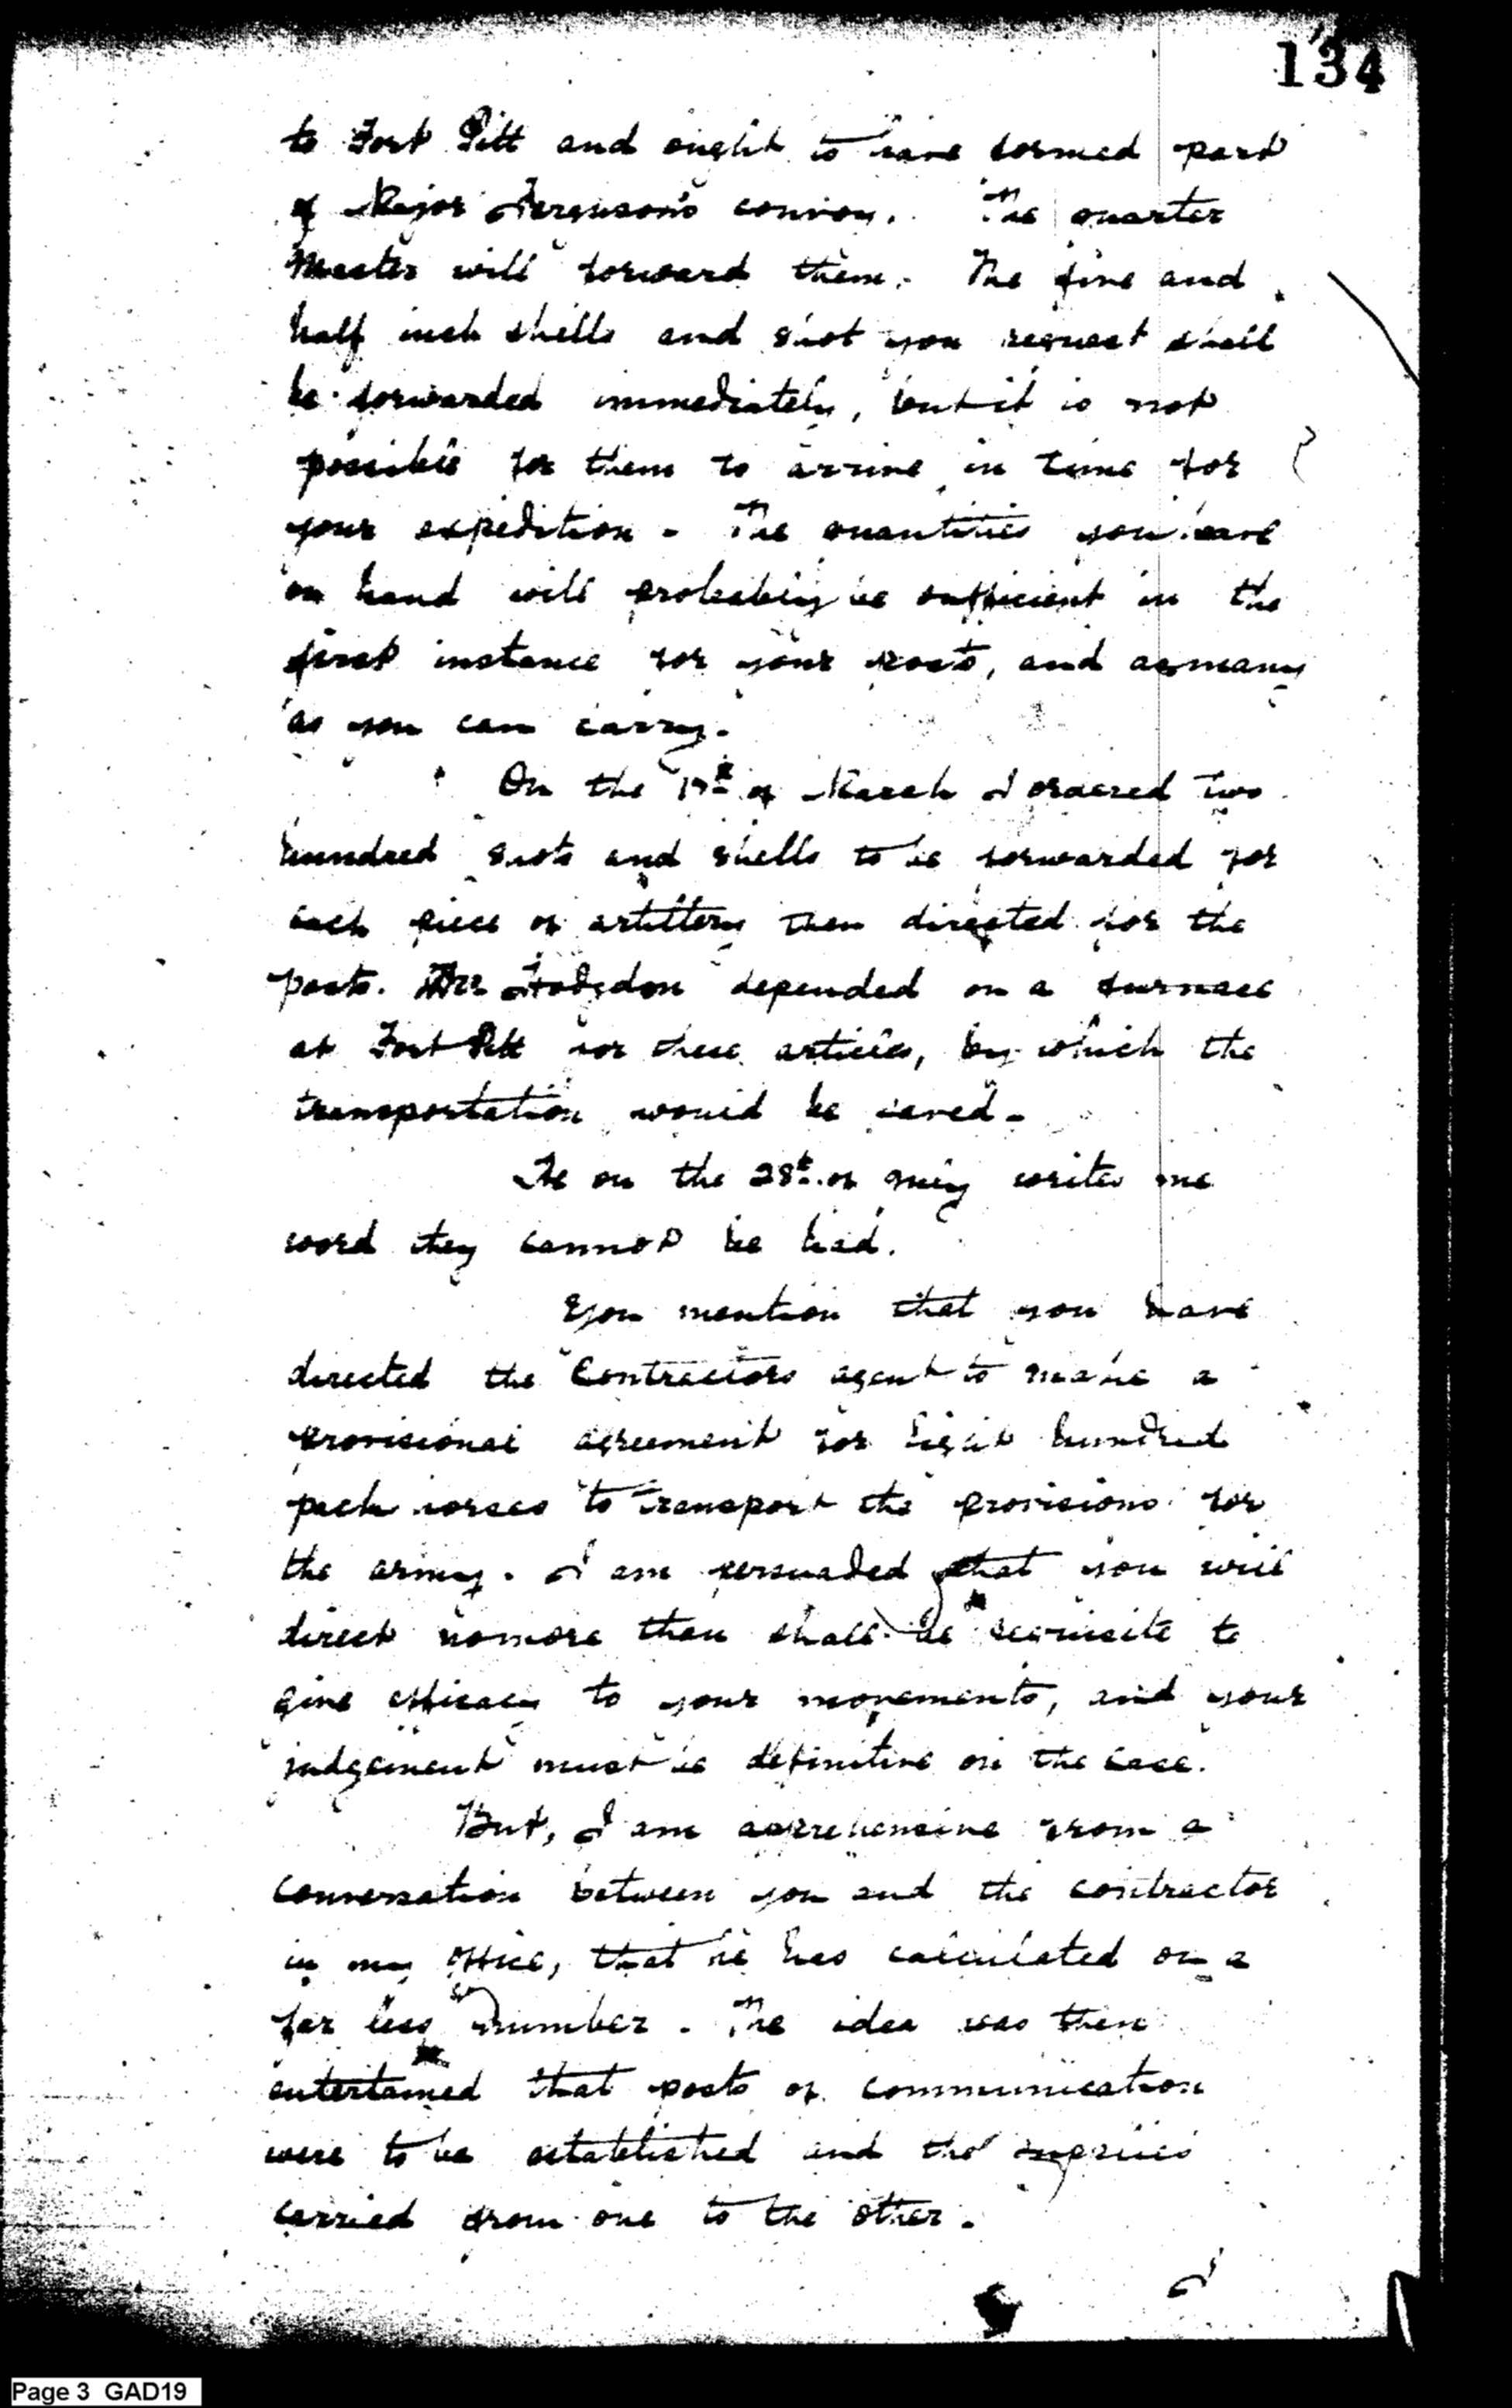 134
to Fort Pitt and ought to have formed part
of Major Ferguson's convoy. The quarter
Master will forward them. The five and
half inch shells and shot you request shall
be forwarded immediately, but it is not
possible for them to arrive in time for
your expedition - The quantities you have
on hand will probably be sufficient in the
first instance for your posts, and as many
as you can carry.
On the 17th of March I ordered two
hundred shots and shells to be forwarded for
each piece of artillery then directed for the
posts. Mr Hodgdon depended on a furnace
at Fort Pitt for these articles, by which the
transportation would be saved -
He on the 28th of May writes me
word they cannot be had.
You mention that you have
directed the Contractors agent to make a
provisional agreement for Eight hundred
pack horses to transport the provisions for
the army. I am persuaded that you will
direct no more than shall be requisite to
give efficacy to your movements, and your
judgement must be definitive on the case.
But, I am apprehensive from a
conversation between you and the contractor
in my office, that he has calculated on a
far less number. The idea was then
entertained that posts of communication
were to be established and the supplies
carried from one to the other.
I
Page 3 GAD19